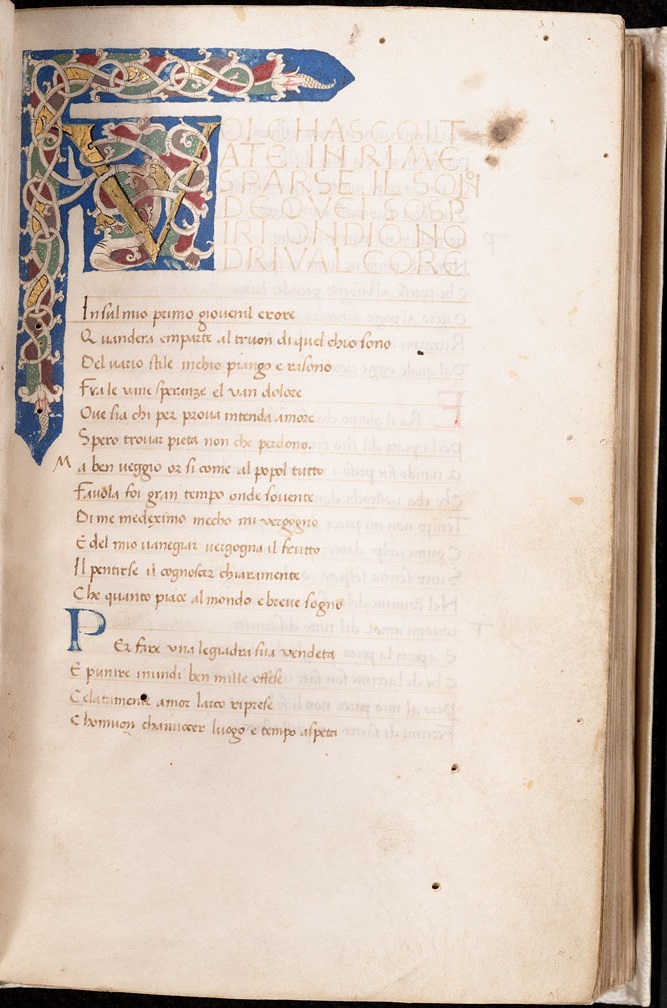 VOI CHASCOLT
ATE IN RIME
SPARSE IL SON
DE QVEI SOSP
IRI ONDIO NO
DRIVAL CORE
In sul mio primo giovenil erore
Quandera emparte altruon di quel chio sono
Del vario stile inchio piango e risono
Fra le vane speranze el van dolore
Oue sia chi per prova intenda amore
Spero trouar pieta non che perdono.
Ma ben veggio or si come al popol tutto
Fauola foi gran tempo onde souente
Di me medeximo mecho mi vergogno
E del mio uanegiar vergogna il frutto
Il pentirse il cognoscer chiaramente
Che quanto piace al mondo e breve sogno
PEr fare vna legiadra sua vendeta
E punire inundi ben mille offese
Celatamente amor larco riprese
Chomuon chanuocer luogo e tempo aspeta